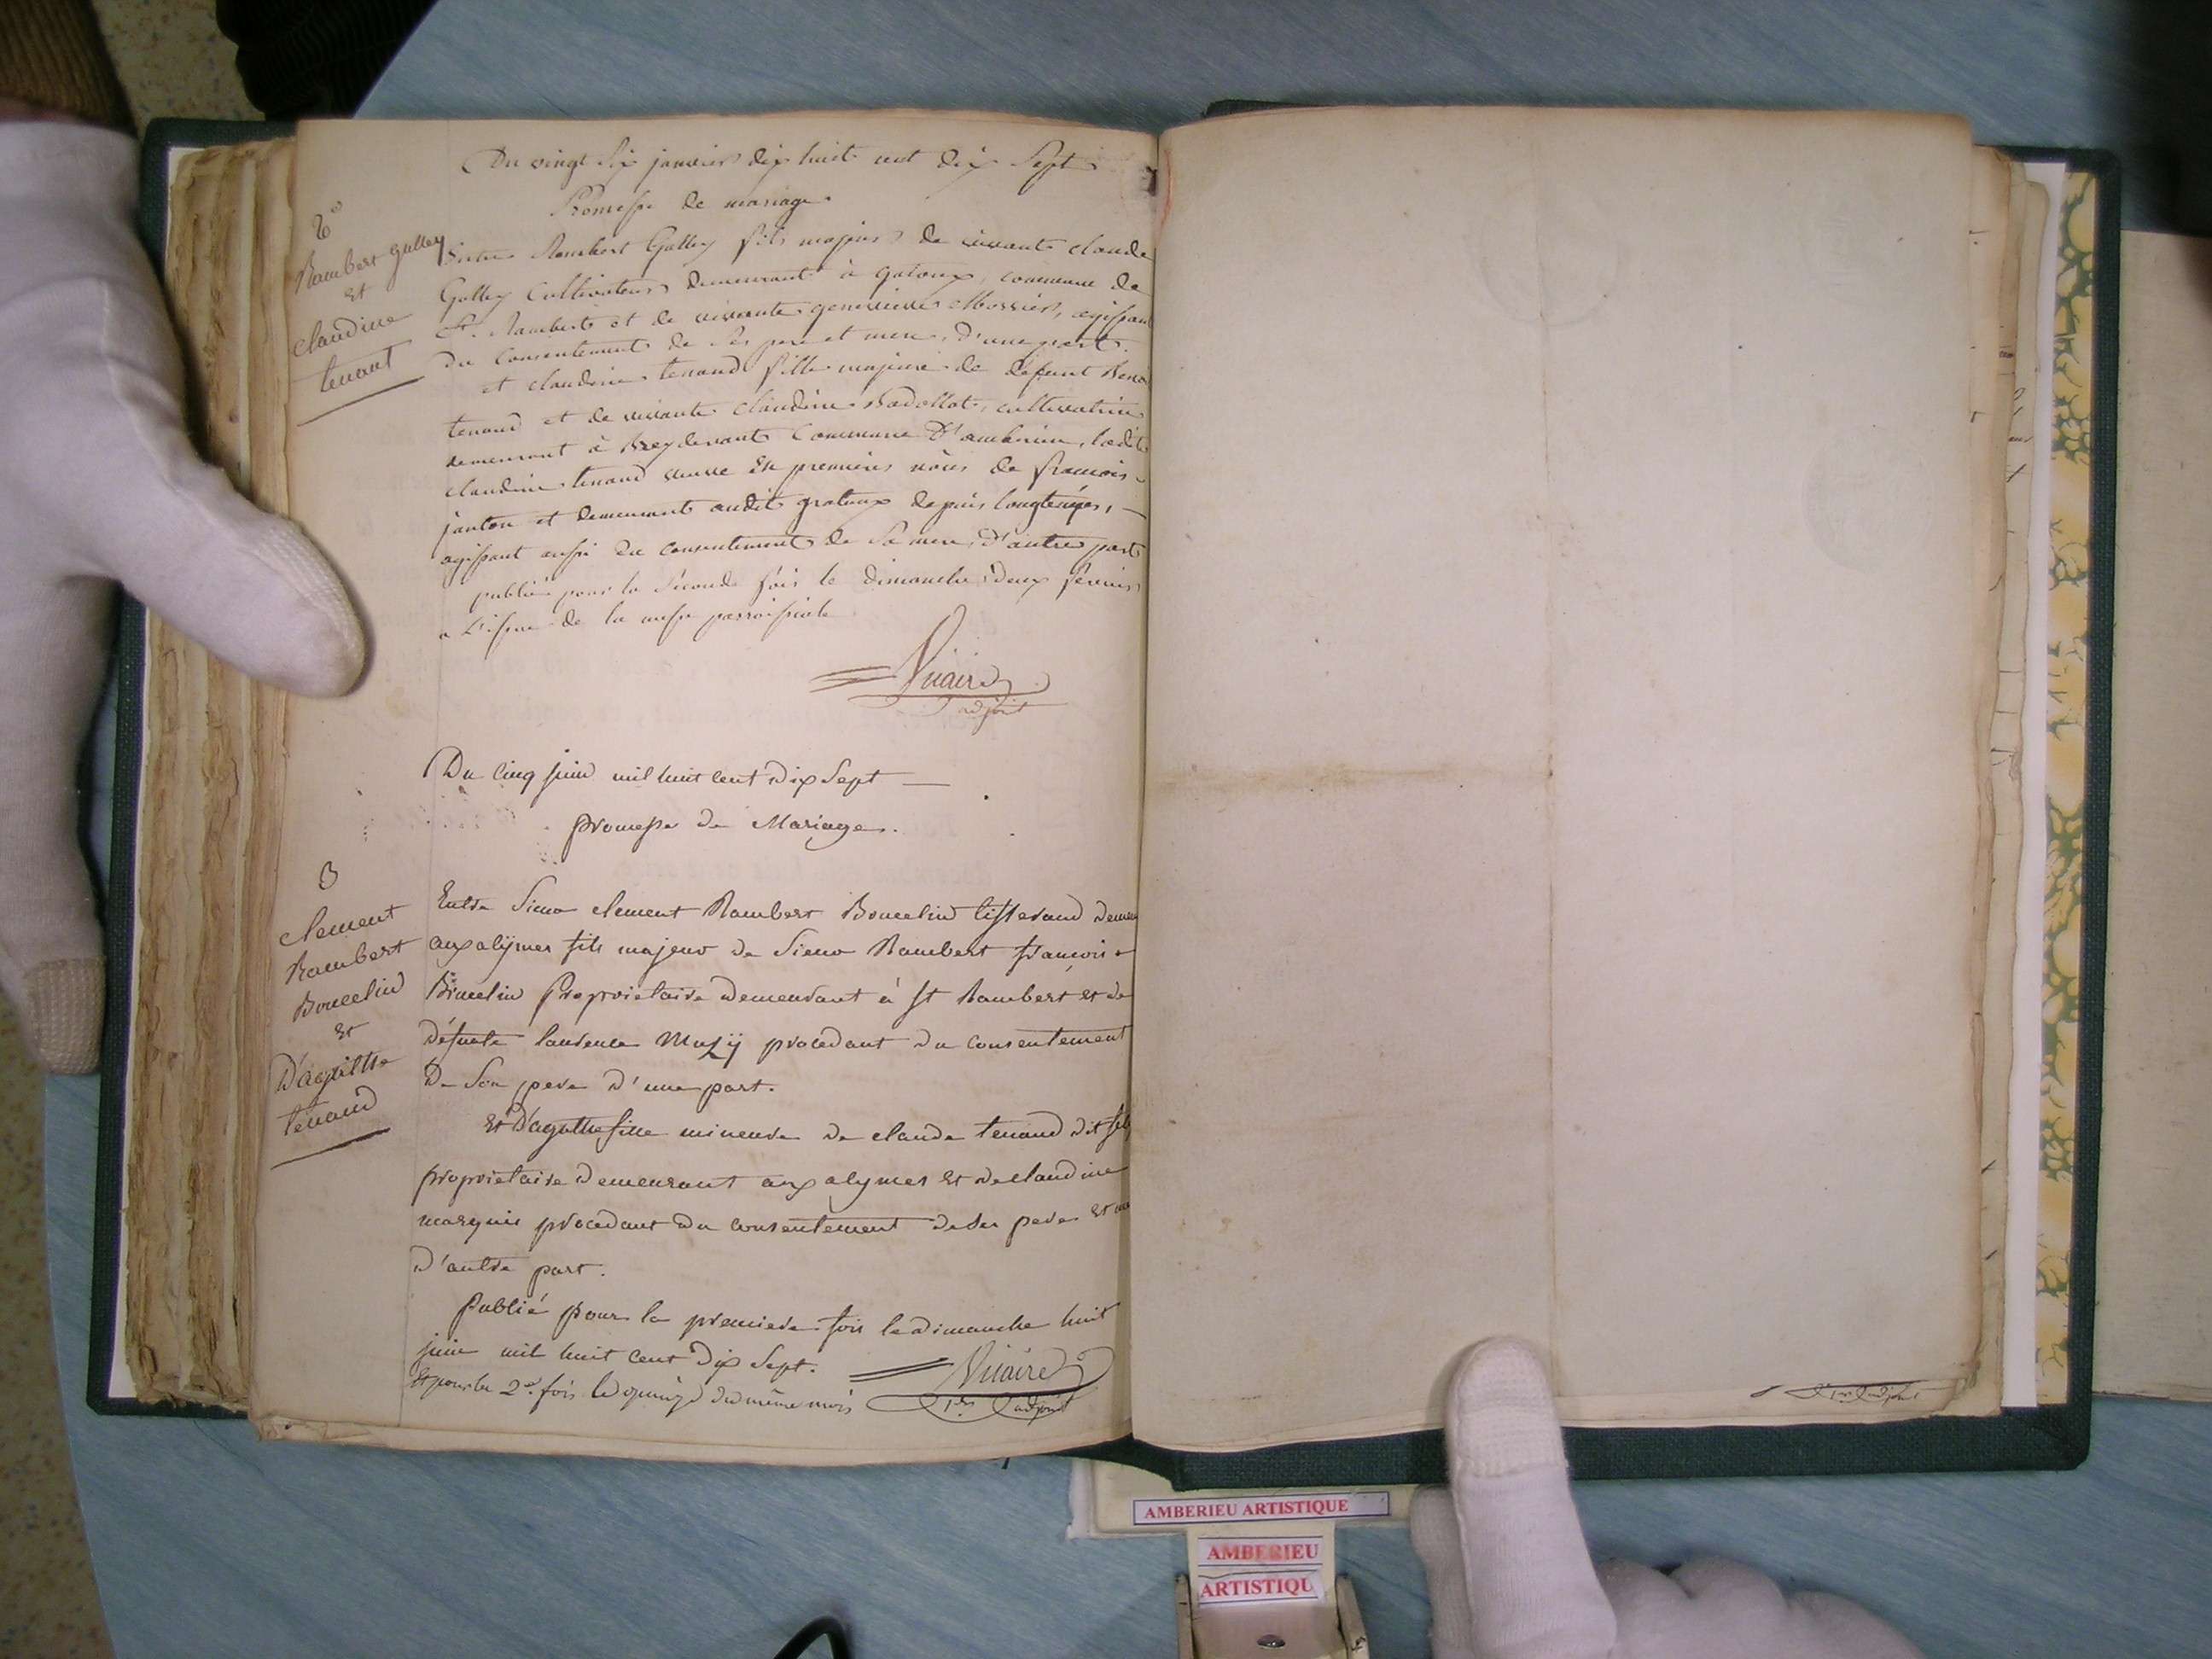 Du vingt six janvier dix huit cent dix Sept
Promesse de mariage
2e
Rambert Galley
et
claudine
tenant
Entre Rambert Galley fils majeur de vivant claude
Galley Cultivateur demeurant à gratoux, commune de
St. Rambert et de vivante genevieve, agissant
du Consentement de Ses pere et mere, d'une part.
et claudine tenand fille majeure de défunt Benoi
tenand et de vivante claudine Badollot, cultivatrice
demeurant à Breydevant Commune d'ambérieu, ladite
claudine tenand veuve en premieres nôces de francois
janton et demeurant audit gratoux depuis longtemps,
agissant aussi du consentement de Sa mere, d'autre part
publié pour la Seconde fois le dimanche deux fevrier
a L'issue de la messe parroissiale
Vicaire
adjoint
Du Cinq juin mil huit cent Dix Sept
promesse de Mariage.
3
Clement
Rambert
Boucelin
Et
D'agathe
tenand
Entre Sieur Clement Rambert Boucelin tisserand demeu
aux alÿmes fils majeur de Sieur Rambert francois
Boucelin Proprietaire demeurant à St Rambert et de
défunte laurence Muzÿ procedant du consentement
De Son pere d'une part.
Et D'agathe fille mineure de claude tenand dit
proprietaire demeurant aux alymes et de claudine
marquis procedant du consentement de Ses pere et
D'autre part.
Publié pour la premiere fois le dimanche huit
juin mil huit cent Dix Sept.
Et pour la 2e. fois le quinze du même mois
Vicaire
1er adjoint
1er adjoint
AMBERIEU ARTISTIQUE
AMBERIEU
ARTISTIQU